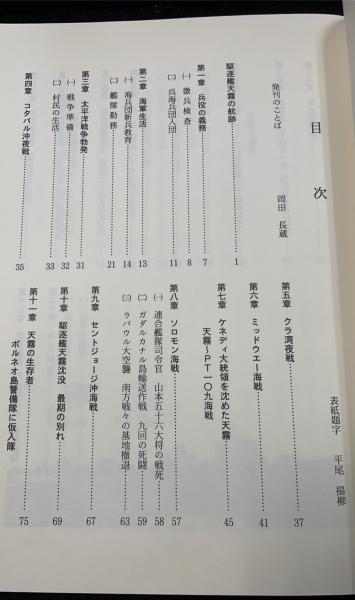 目次
発刊のことば　岡田　長蔵
駆逐艦天霧の航跡……1
第一章　兵役の義務……7
㈠　徴兵検査……8
㈡　呉海兵団入団……11
第二章　海軍生活……13
㈠　海兵団新兵教育……14
㈡　艦隊勤務……21
第三章　太平洋戦争勃発……31
㈠　戦争準備……32
㈡　村民の生活……33
第四章　コタバル沖夜戦……35
表紙題字　平尾　揚柳
第五章　クラ湾夜戦……37
第六章　ミッドウエー海戦……41
第七章　ケネディ大統領を沈めた天霧
天霧～PT一〇九海戦……45
第八章　ソロモン海戦……57
㈠　連合艦隊司令官　山本五十六大将の戦死……58
㈡　ガダルカナル島輸送作戦　九回の死闘……59
㈢　ラバウル大空襲　南方戦々の基地撤退……63
第九章　セントジョージ沖海戦……67
第十章　駆逐艦天霧沈没　最期の別れ……69
第十一章　天霧の生存者
ボルネオ島警備隊に仮入隊……75